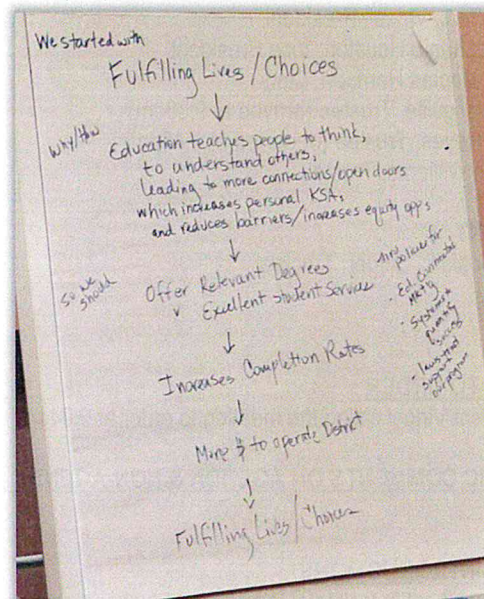 We started with
Fulfilling Lives / Choices
Why/How
Education teaches people to think,
to understand others,
leading to more connections/open doors
which increases personal KSA,
and reduces barriers/increases equity opps
So we
should
Offer Relevant Degrees
Excellent student Services
policies for
- Ed. Environment
Mktg
- Systems
success
- laws that
support
our program
Increases Completion Rates
More $ to operate District
Fulfilling Lives / Choices